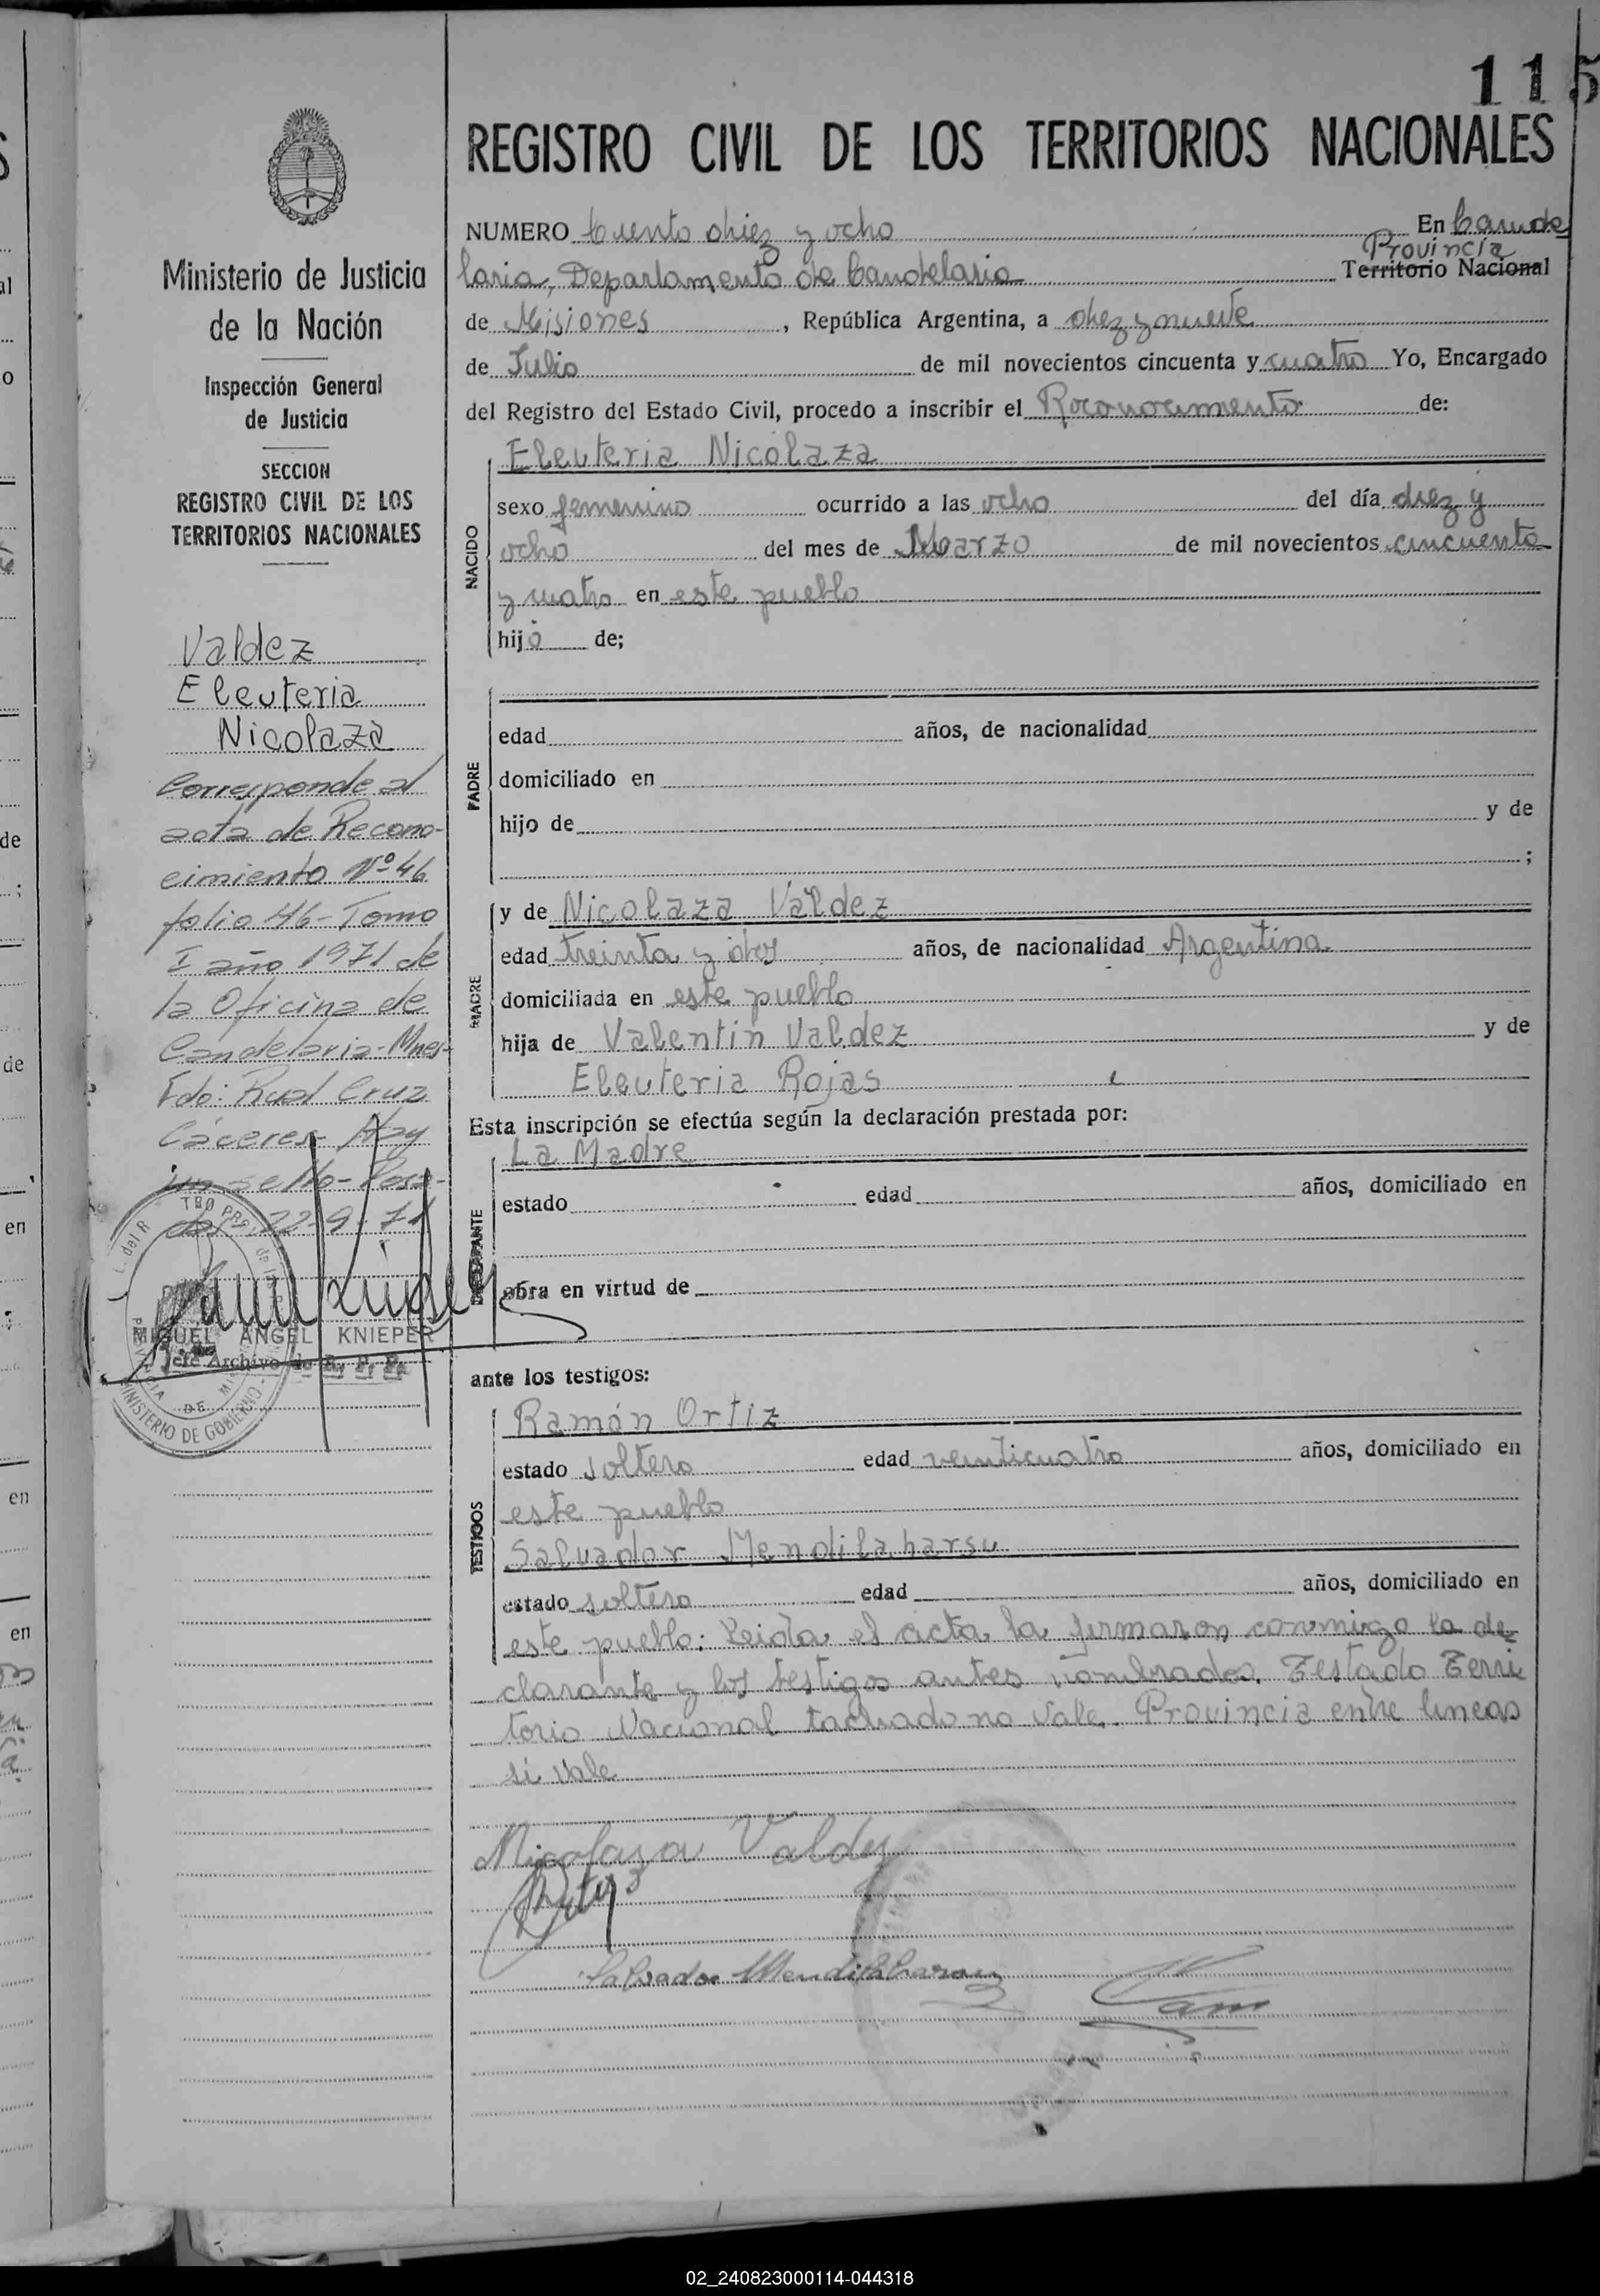 115
REGISTRO CIVIL DE LOS TERRITORIOS NACIONALES
NUMERO Ciento diez y ocho En Cande
Provincia
laria, Departamento de Candelaria Territorio Nacional
de Misiones, República Argentina, a diez y nueve
de Julio de mil novecientos cincuenta y cuatro Yo, Encargado
del Registro del Estado Civil, procedo a inscribir el Reconocimiento de:
NACIDO
Eleuteria Nicolaza
sexo femenino ocurrido a las ocho del día diez y
ocho del mes de Marzo de mil novecientos cincuenta
y cuatro en este pueblo
hijo de;
PADRE
edad años, de nacionalidad
domiciliado en
hijo de y de
;
MADRE
y de Nicolaza Valdez
edad treinta y dos años, de nacionalidad Argentina
domiciliada en este pueblo
hija de Valentin Valdez y de
Eleuteria Rojas
Esta inscripción se efectúa según la declaración prestada por:
La Madre
estado edad años, domiciliado en
obra en virtud de
ante los testigos:
TESTIGOS
Ramón Ortiz
estado soltero edad veinticuatro años, domiciliado en
este pueblo
Salvador Mendilaharsu
estado soltero edad años, domiciliado en
este pueblo: Leida el acta la firmaron conmigo la de
clarante y los testigos antes nombrados. Testado Terri
torio Nacional tachado no vale. Provincia entre lineas
si vale
Nicolaza Valdez
Salvador Mendilaharzu
Ministerio de Justicia
de la Nación
Inspección General
de Justicia
SECCION
REGISTRO CIVIL DE LOS
TERRITORIOS NACIONALES
Valdez
Eleuteria
Nicolaza
Corresponde al
acta de Recono-
cimiento Nº 46
folio 46 - Tomo
I año 1971 de
la Oficina de
Candelaria - Mnes-
Fdo: Raul Cruz
Cáceres - Hay
un sello - Posa-
das, 22-9-71
MIGUEL ANGEL KNIEPER
Jefe Archivo de R. P. P.
MINISTERIO DE GOBIERNO
al
o
de
;
de
en
en
en
02_240823000114-044318